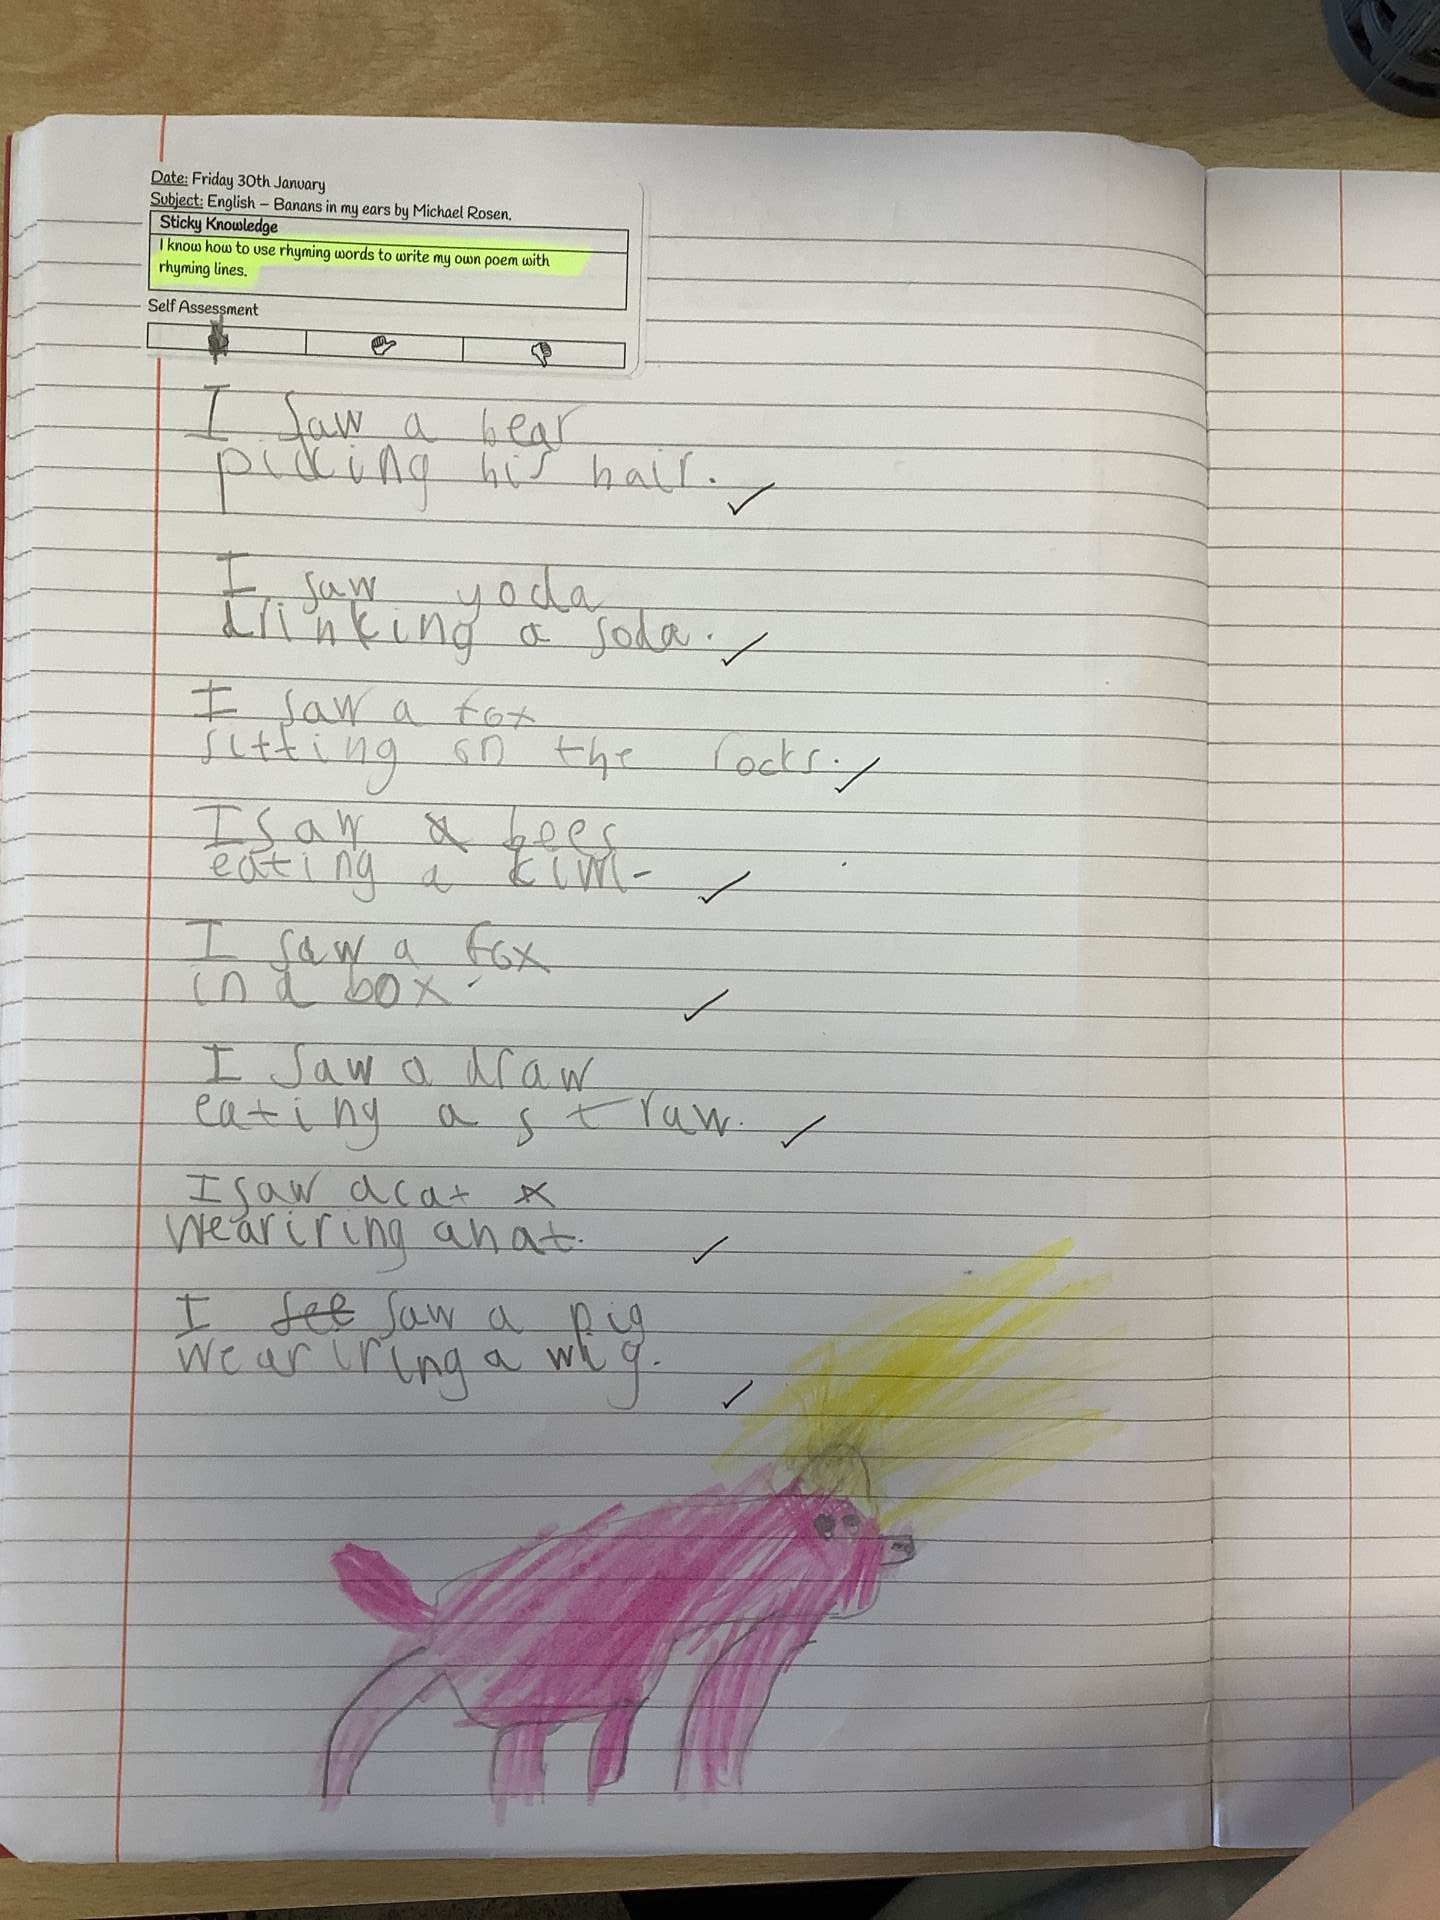 Date: Friday 30th January
Subject: English – Banans in my ears by Michael Rosen.
Sticky Knowledge
I know how to use rhyming words to write my own poem with
rhyming lines.
Self Assessment
I saw a bear
picking his hair.
I saw yoda
drinking a soda.
I saw a fox
sitting on the rocks.
I saw bees
eating a
I saw a fox
in a box.
I saw a draw
eating a straw.
I saw a cat
weariring a hat.
I see saw a pig
weariring a wig.